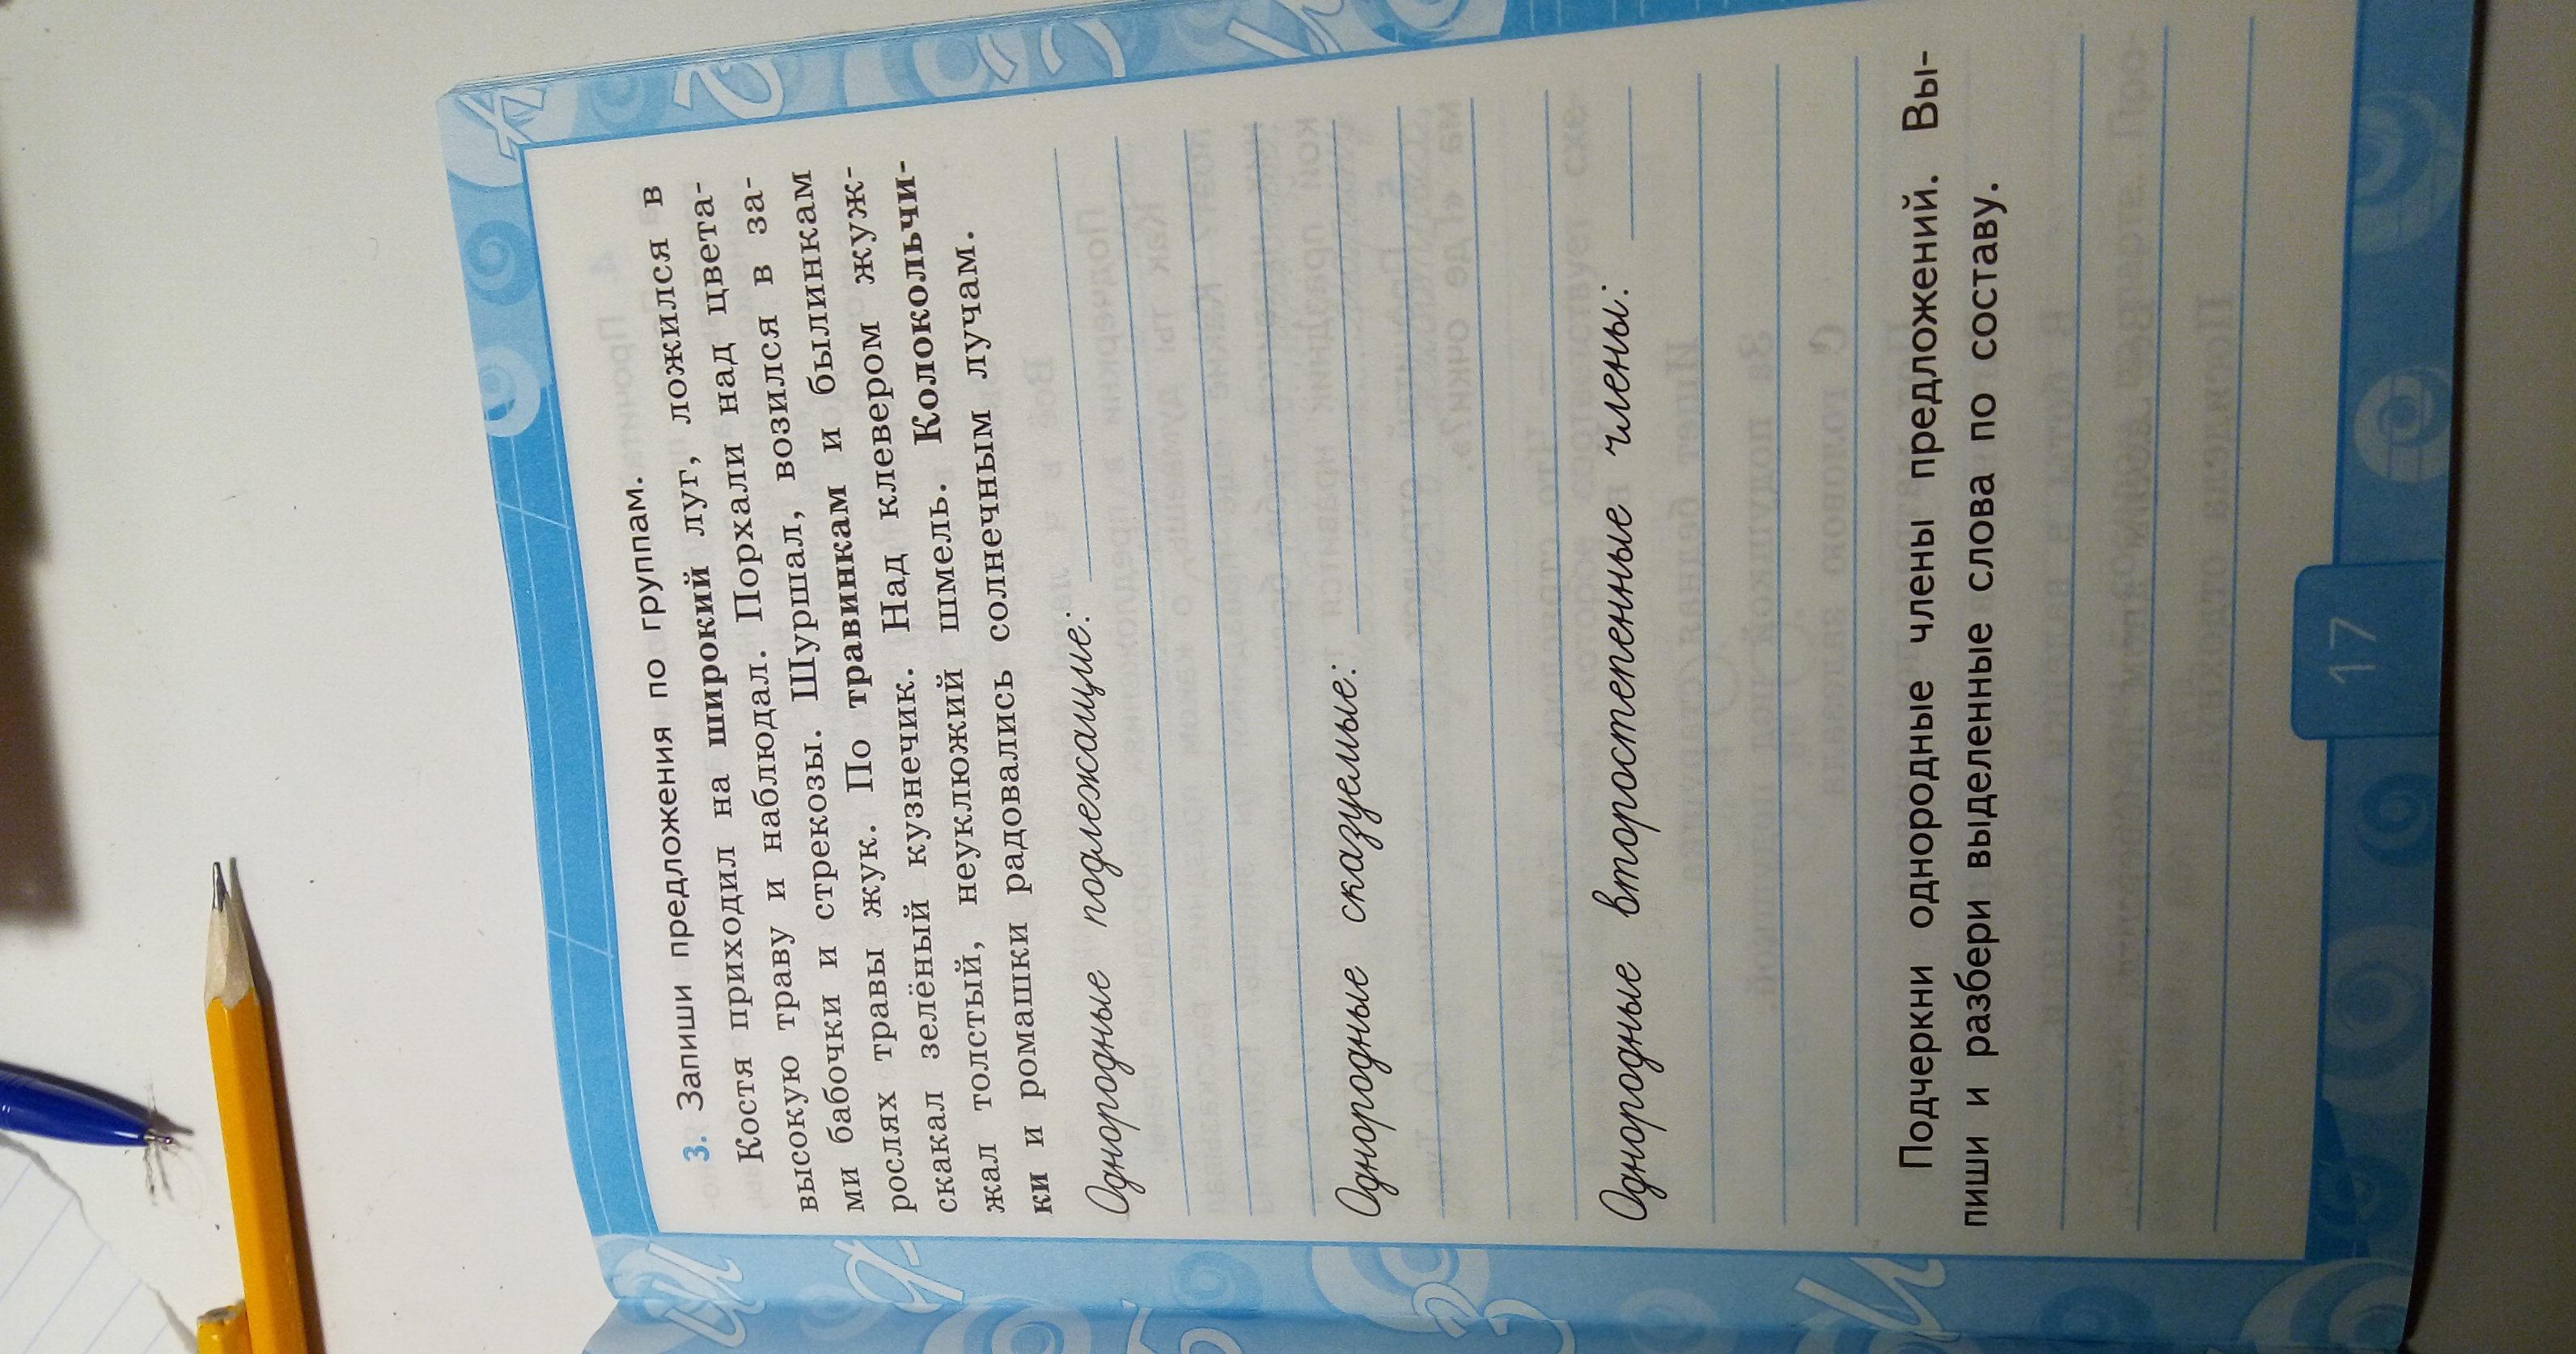 3. Запиши предложения по группам.
Костя приходил на широкий луг, ложился в
высокую траву и наблюдал. Порхали над цвета-
ми бабочки и стрекозы. Шуршал, возился в за-
рослях травы жук. По травинкам и былинкам
скакал зелёный кузнечик. Над клевером жуж-
жал толстый, неуклюжий шмель. Колокольчи-
ки и ромашки радовались солнечным лучам.
Однородные подлежащие:
Однородные сказуемые:
Однородные второстепенные члены:
Подчеркни однородные члены предложений. Вы-
пиши и разбери выделенные слова по составу.
17